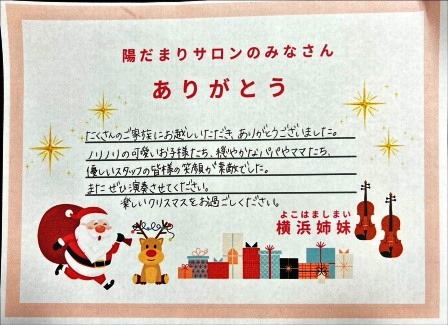 陽だまりサロンのみなさん
ありがとう
たくさんのご家族にお越しいただき、ありがとうございました。
ノリノリの可愛いお子様たち、穏やかなパパやママたち、
優しいスタッフの皆様の笑顔が素敵でした。
またぜひ演奏させてください。
楽しいクリスマスをお過ごしください。
よこはましまい
横浜姉妹